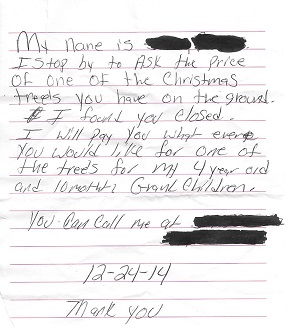 My name is
I stop by to Ask the price
of one of the Christmas
trees you have on the ground.
I found you closed.
I will pay you what ever
you would like for one of
the trees for my 4 year old
and 10 month Grand Children.
You Can Call me at
12-24-14
Thank you